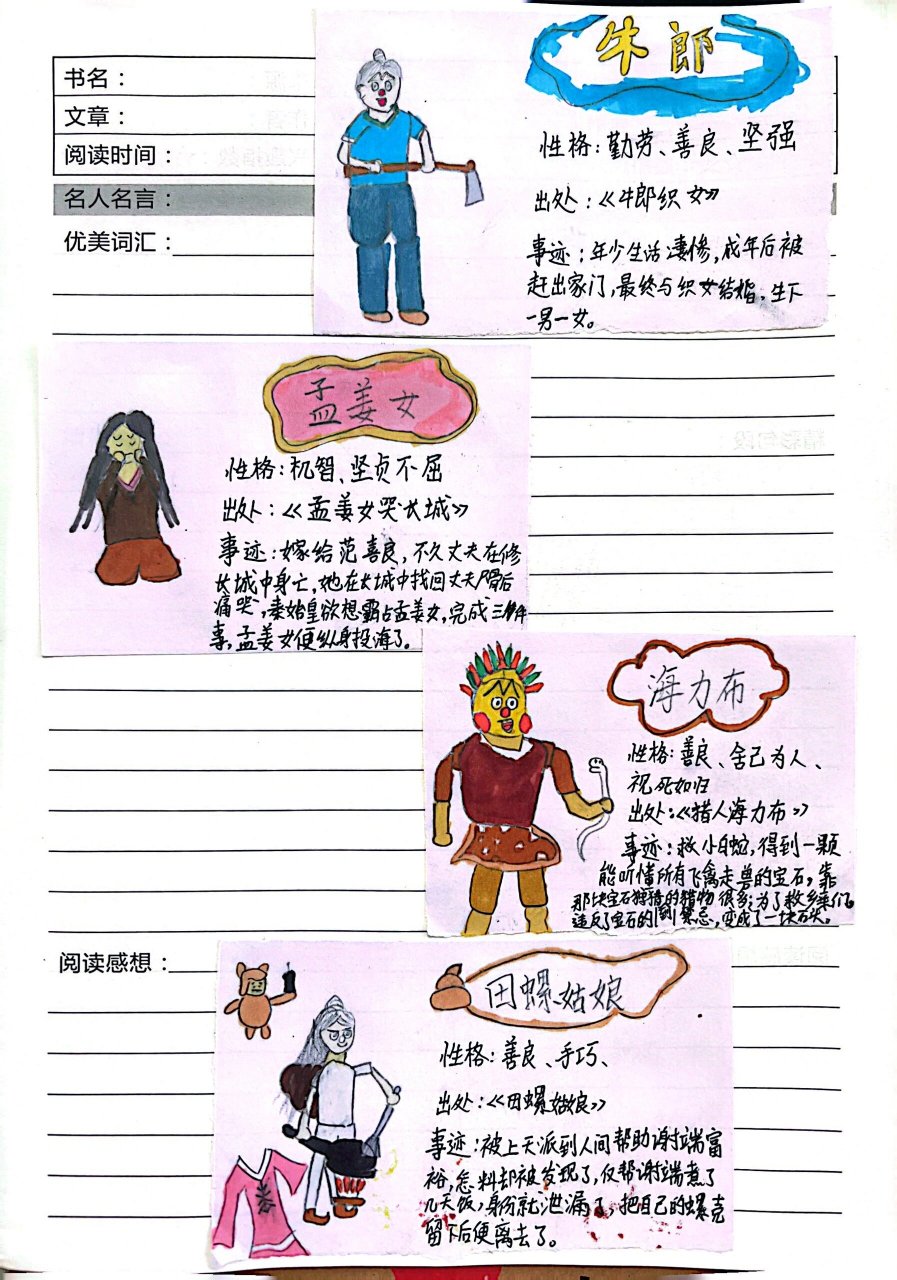 书名：
文章：
阅读时间：
名人名言：
优美词汇：
牛郎
性格：勤劳、善良、坚强
出处：《牛郎织女》
事迹：年少生活凄惨，成年后被
赶出家门，最终与织女结婚，生下
一男一女。
孟姜女
性格：机智、坚贞不屈
出处：《孟姜女哭长城》
事迹：嫁给范喜良，不久丈夫在修
长城中身亡，她在长城中找回丈夫尸骨后
痛哭，秦始皇欲想霸占孟姜女，完成三件
事，孟姜女便纵身投海了。
海力布
性格：善良、舍己为人、
视死如归
出处：《猎人海力布》
事迹：救小白蛇，得到一颗
能听懂所有飞禽走兽的宝石，靠
那块宝石狩猎的猎物很多；为了救乡亲们，
违反了宝石的禁忌，变成了一块石头。
阅读感想：
田螺姑娘
性格：善良、手巧、
出处：《田螺姑娘》
事迹：被上天派到人间帮助谢端富
裕，怎料却被发现了，仅帮谢端煮了
几天饭，身份就泄漏了，把自己的螺壳
留下后便离去了。